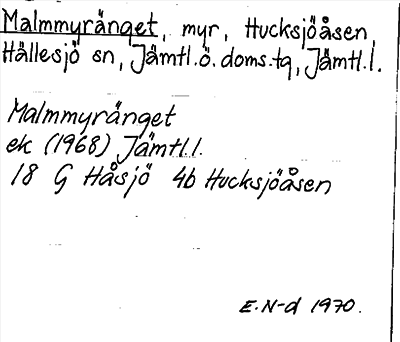 Malmmyränget, myr, Hucksjöåsen,
Hällesjö sn, Jämtl.ö.doms.tg, Jämtl.l.
Malmmyränget
ek (1968) Jämtl.l.
18 G Håsjö 4b Hucksjöåsen
E.N-d 1970.